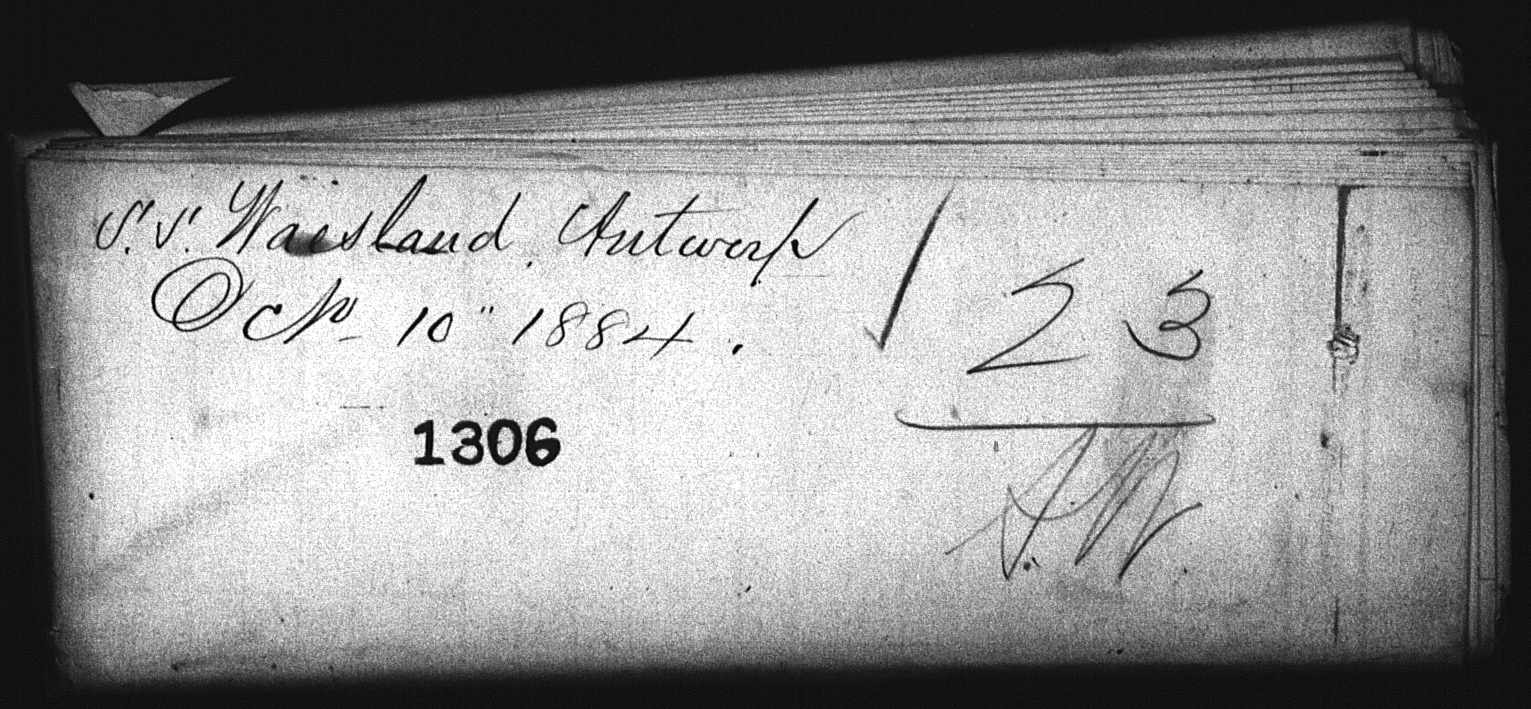 S.S. Waesland, Antwerp
Oct 10" 1884.
23
1306